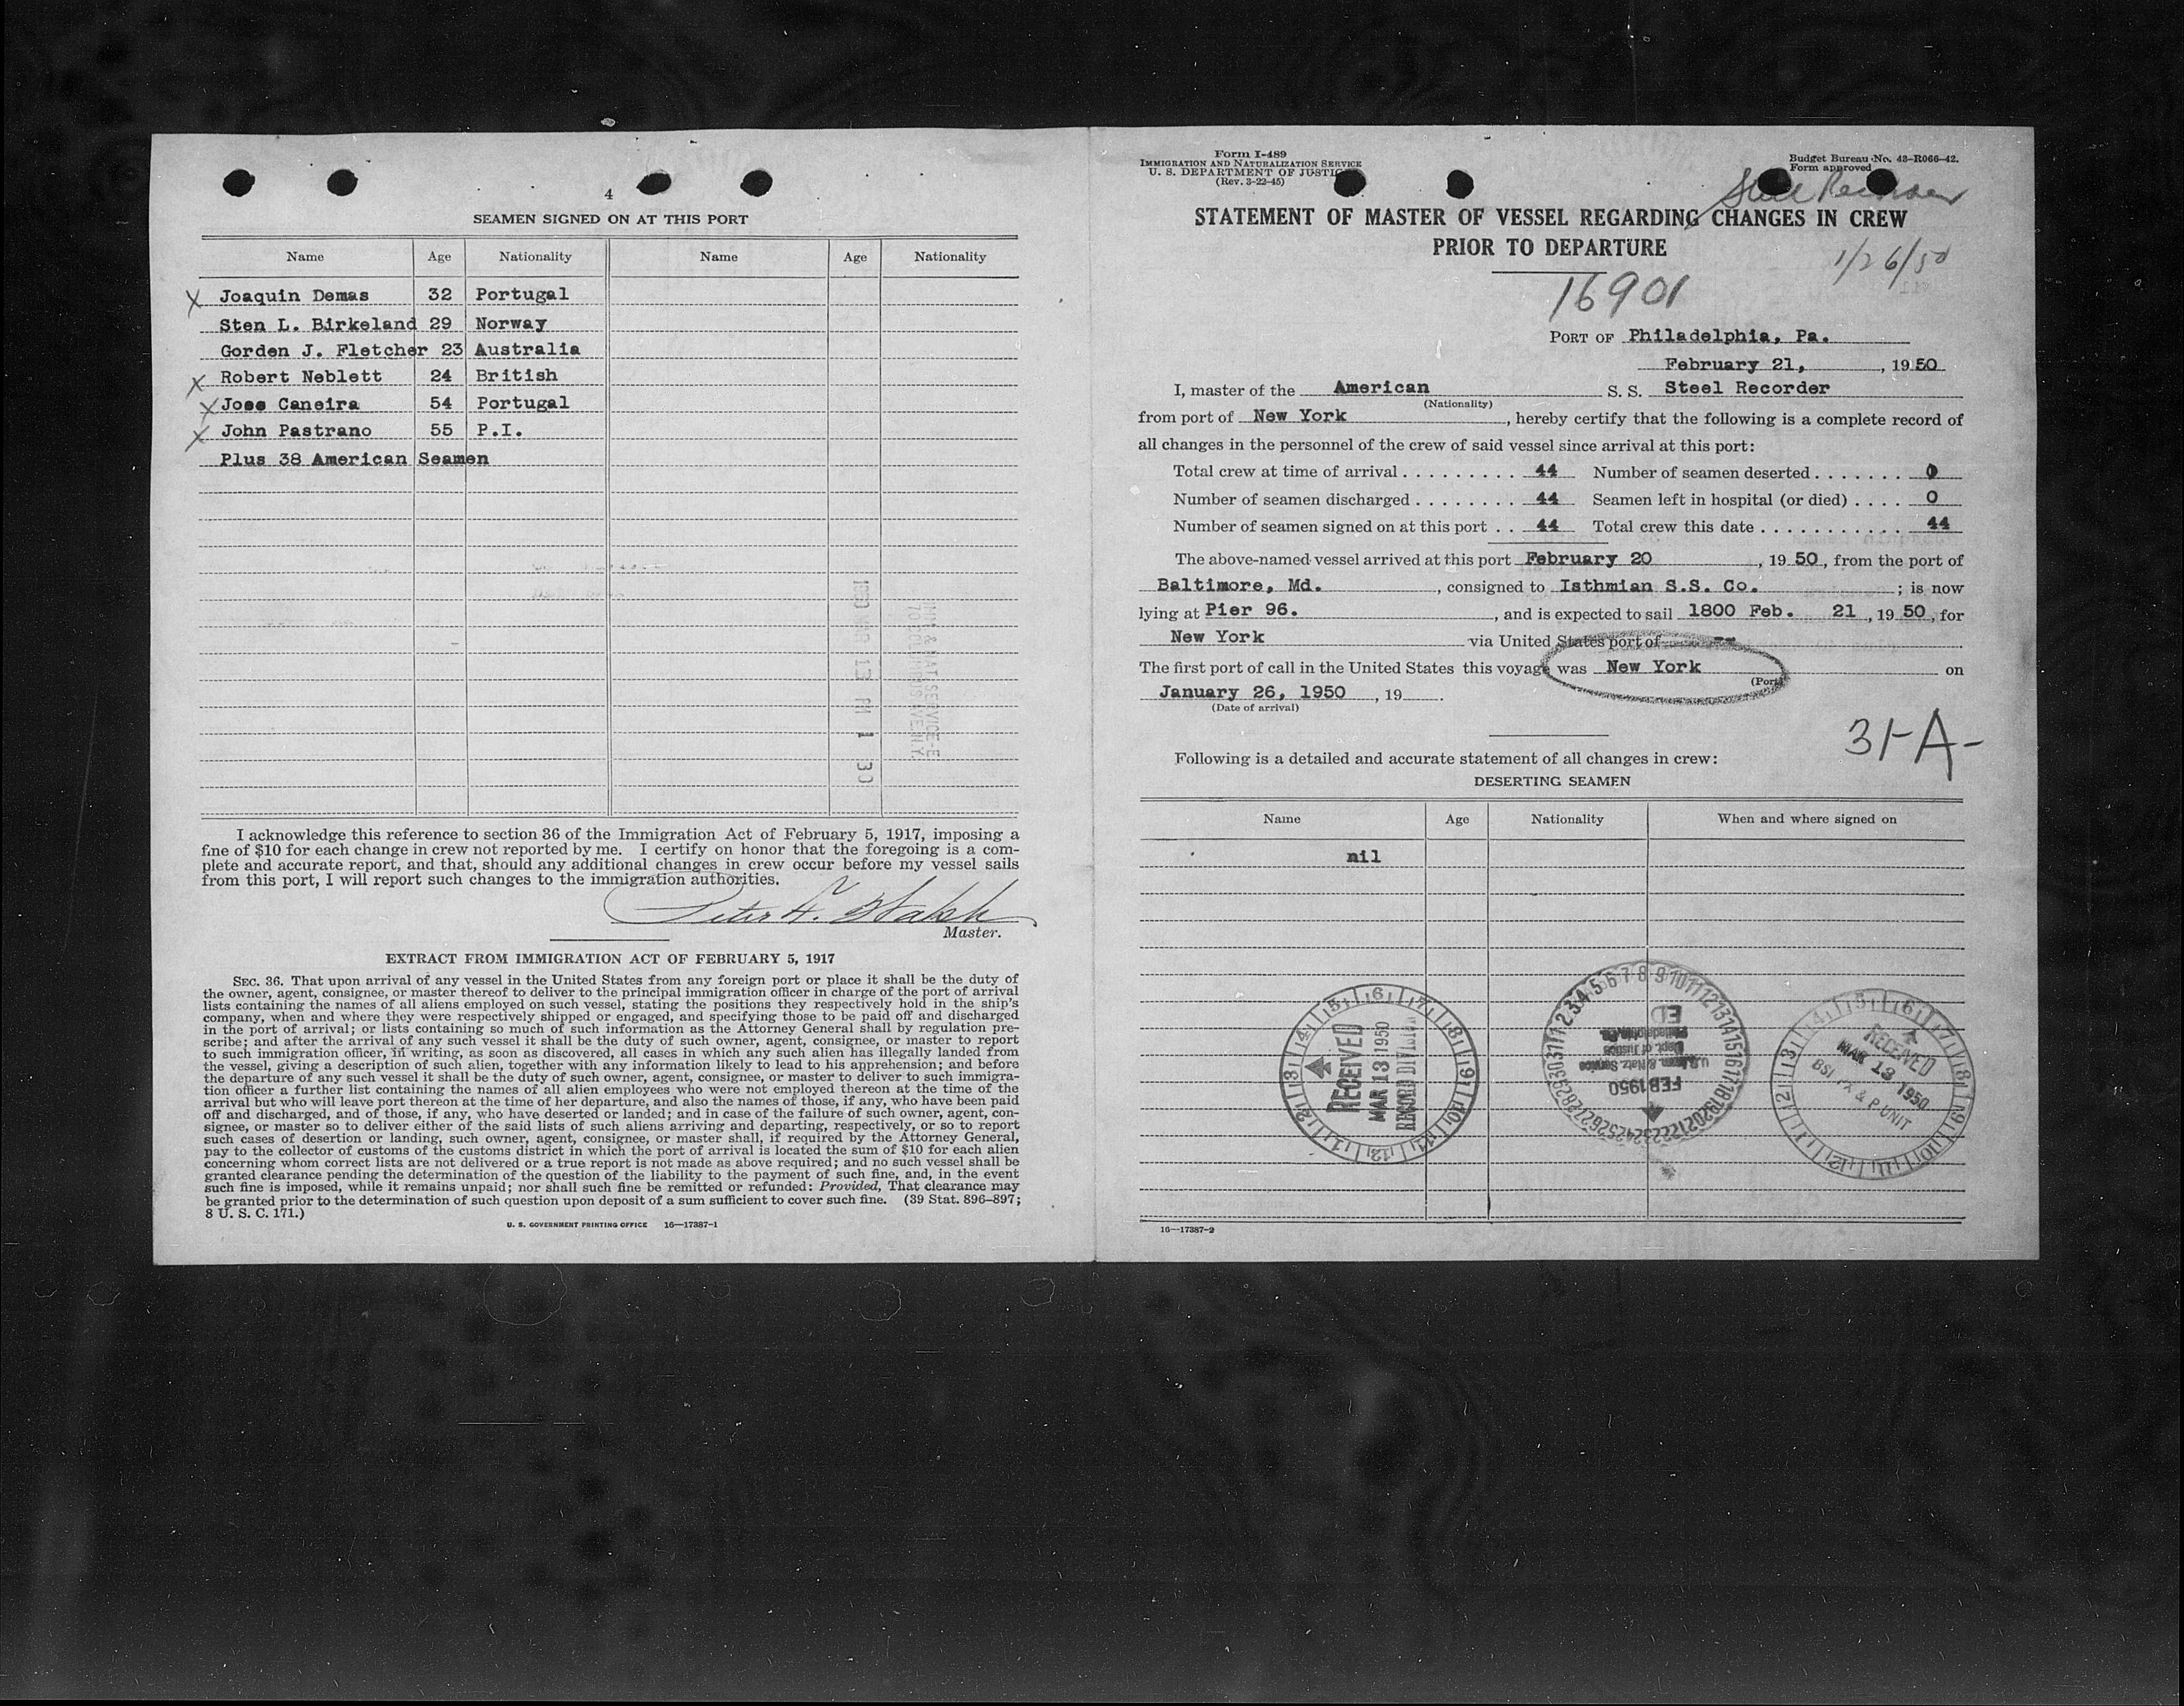 4
SEAMEN SIGNED ON AT THIS PORT
Name Age Nationality Name Age Nationality
X Joaquin Demas 32 Portugal
Sten L. Birkeland 29 Norway
Gorden J. Fletcher 23 Australia
X Robert Neblett 24 British
X Jose Caneira 54 Portugal
X John Pastrano 55 P.I.
Plus 38 American Seamen
I acknowledge this reference to section 36 of the Immigration Act of February 5, 1917, imposing a
fine of $10 for each change in crew not reported by me. I certify on honor that the foregoing is a com-
plete and accurate report, and that, should any additional changes in crew occur before my vessel sails
from this port, I will report such changes to the immigration authorities.
Peter F. Walsh
Master.
EXTRACT FROM IMMIGRATION ACT OF FEBRUARY 5, 1917
SEC. 36. That upon arrival of any vessel in the United States from any foreign port or place it shall be the duty of
the owner, agent, consignee, or master thereof to deliver to the principal immigration officer in charge of the port of arrival
lists containing the names of all aliens employed on such vessel, stating the positions they respectively hold in the ship's
company, when and where they were respectively shipped or engaged, and specifying those to be paid off and discharged
in the port of arrival; or lists containing so much of such information as the Attorney General shall by regulation pre-
scribe; and after the arrival of any such vessel it shall be the duty of such owner, agent, consignee, or master to report
to such immigration officer, in writing, as soon as discovered, all cases in which any such alien has illegally landed from
the vessel, giving a description of such alien, together with any information likely to lead to his apprehension; and before
the departure of any such vessel it shall be the duty of such owner, agent, consignee, or master to deliver to such immigra-
tion officer a further list containing the names of all alien employees who were not employed thereon at the time of the
arrival but who will leave port thereon at the time of her departure, and also the names of those, if any, who have been paid
off and discharged, and of those, if any, who have deserted or landed; and in case of the failure of such owner, agent, con-
signee, or master so to deliver either of the said lists of such aliens arriving and departing, respectively, or so to report
such cases of desertion or landing, such owner, agent, consignee, or master shall, if required by the Attorney General,
pay to the collector of customs of the customs district in which the port of arrival is located the sum of $10 for each alien
concerning whom correct lists are not delivered or a true report is not made as above required; and no such vessel shall be
granted clearance pending the determination of the question of the liability to the payment of such fine, and, in the event
such fine is imposed, while it remains unpaid; nor shall such fine be remitted or refunded: Provided, That clearance may
be granted prior to the determination of such question upon deposit of a sum sufficient to cover such fine. (39 Stat. 896–897;
8 U. S. C. 171.)
U. S. GOVERNMENT PRINTING OFFICE 16—17387-1
Form I-489
IMMIGRATION AND NATURALIZATION SERVICE
U. S. DEPARTMENT OF JUSTIC
(Rev. 3-22-45)
Budget Bureau No. 43-R066-42.
Form approved
Steel Recorder
STATEMENT OF MASTER OF VESSEL REGARDING CHANGES IN CREW
PRIOR TO DEPARTURE
1/26/50
16901
PORT OF Philadelphia, Pa.
February 21, , 19 50
I, master of the American S. S. Steel Recorder
(Nationality)
from port of New York , hereby certify that the following is a complete record of
all changes in the personnel of the crew of said vessel since arrival at this port:
Total crew at time of arrival . . . . . . . . . . 44 Number of seamen deserted . . . . . . . 0
Number of seamen discharged . . . . . . . . . 44 Seamen left in hospital (or died) . . . . 0
Number of seamen signed on at this port . . 44 Total crew this date . . . . . . . . . . . 44
The above-named vessel arrived at this port February 20 , 19 50 , from the port of
Baltimore, Md. , consigned to Isthmian S.S. Co. ; is now
lying at Pier 96. , and is expected to sail 1800 Feb. 21 , 19 50 , for
New York via United States port of --
The first port of call in the United States this voyage was New York on
(Port)
January 26, 1950 , 19
(Date of arrival)
31-A-
Following is a detailed and accurate statement of all changes in crew:
DESERTING SEAMEN
Name Age Nationality When and where signed on
nil
RECEIVED
MAR 13 1950
RECORD DIVISION
U.S. Imm. & Natz. Service
Dept. of Justice
Philadelphia, Pa.
FEB 1950
RECEIVED
MAR 13 1950
16—17387-2